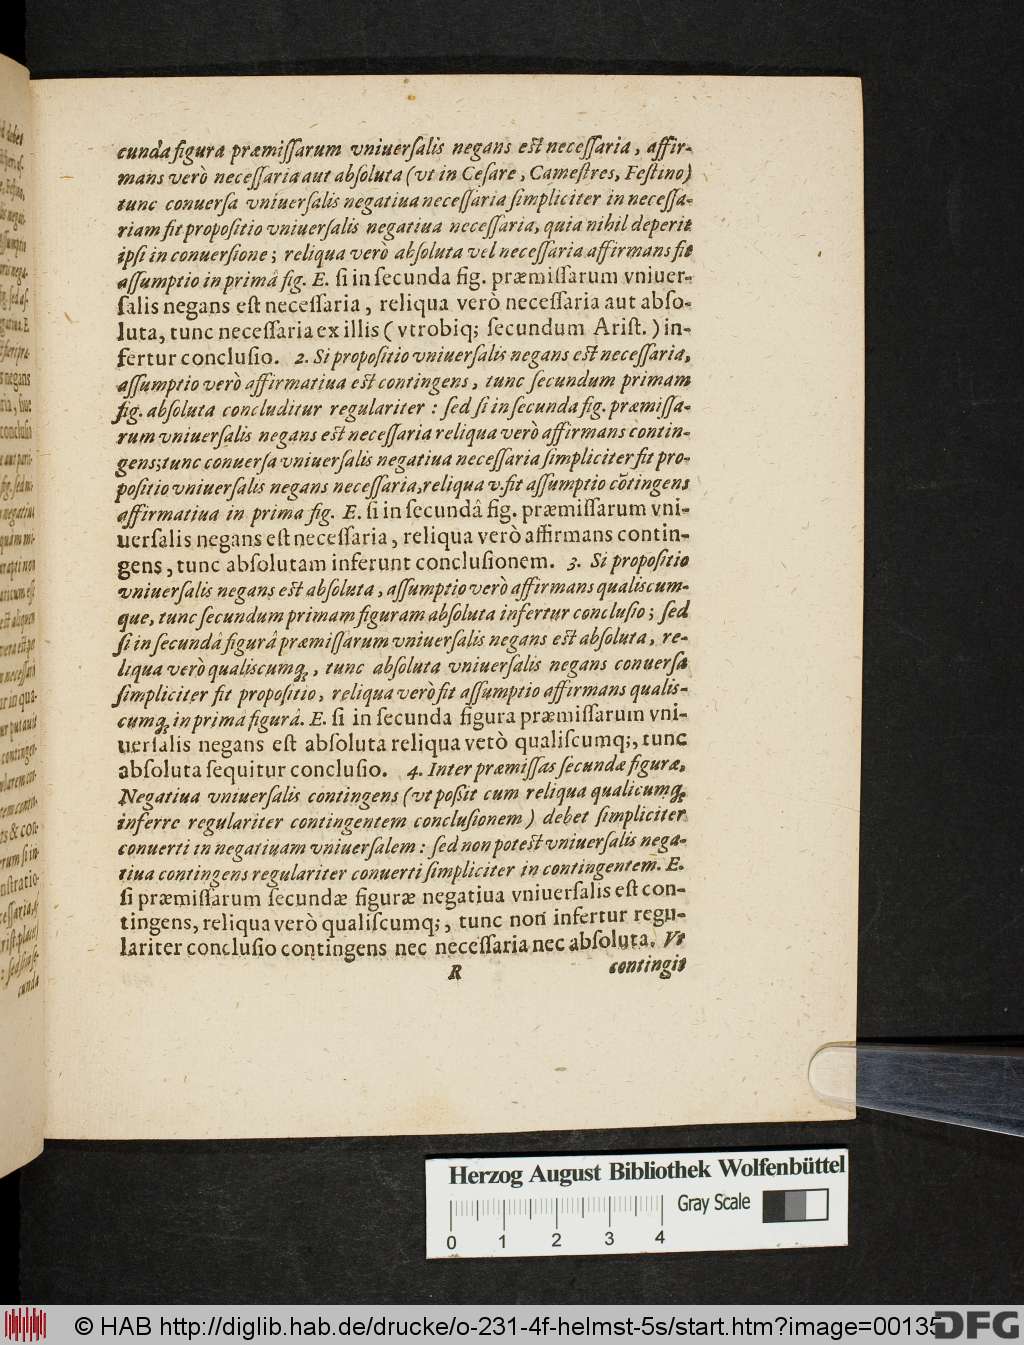 cunda figura præmiſſarum vniuerſalis negans eſt neceſſaria, affir-
mans verò neceſſaria aut abſoluta (vt in Ceſare, Cameſtres, Feſtino)
tunc conuerſa vniuerſalis negatiua neceſſaria ſimpliciter in neceſſa-
riam fit propoſitio vniuerſalis negatiua neceſſaria, quia nihil deperit
ipſi in conuerſione; reliqua verò abſoluta vel neceſſaria affirmans fit
aſſumptio in primâ fig. E. ſi in ſecunda fig. præmiſſarum vniuer-
ſalis negans eſt neceſſaria, reliqua verò neceſſaria aut abſo-
luta, tunc neceſſaria ex illis (vtrobiq; ſecundum Ariſt.) in-
fertur concluſio. 2. Si propoſitio vniuerſalis negans eſt neceſſaria,
aſſumptio verò affirmatiua eſt contingens, tunc ſecundum primam
fig. abſoluta concluditur regulariter: ſed ſi in ſecunda fig. præmiſſa-
rum vniuerſalis negans eſt neceſſaria reliqua verò affirmans contin-
gens; tunc conuerſa vniuerſalis negatiua neceſſaria ſimpliciter fit pro-
poſitio vniuerſalis negans neceſſaria, reliqua v. fit aſſumptio cõtingens
affirmatiua in prima fig. E. ſi in ſecundâ fig. præmiſſarum vni-
uerſalis negans eſt neceſſaria, reliqua verò affirmans contin-
gens, tunc abſolutam inferunt concluſionem. 3. Si propoſitio
vniuerſalis negans eſt abſoluta, aſſumptio verò affirmans qualiscum-
que, tunc ſecundum primam figuram abſoluta infertur concluſio; ſed
ſi in ſecundâ figurâ præmiſſarum vniuerſalis negans eſt abſoluta, re-
liqua verò qualiscumq;, tunc abſoluta vniuerſalis negans conuerſa
ſimpliciter fit propoſitio, reliqua verò fit aſſumptio affirmans qualis-
cumq; in primâ figurâ. E. ſi in ſecunda figura præmiſſarum vni-
uerſalis negans eſt abſoluta reliqua verò qualiſcumq;, tunc
abſoluta ſequitur concluſio. 4. Inter præmiſſas ſecundæ figuræ,
Negatiua vniuerſalis contingens (vt poſſit cum reliqua qualicumq;
inferre regulariter contingentem concluſionem) debet ſimpliciter
conuerti in negatiuam vniuerſalem: ſed non poteſt vniuerſalis nega-
tiua contingens regulariter conuerti ſimpliciter in contingentem. E.
ſi præmiſſarum ſecundæ figuræ negatiua vniuerſalis eſt con-
tingens, reliqua verò qualiſcumq;, tunc non infertur regu-
lariter concluſio contingens nec neceſſaria nec abſoluta. Vt
R contingit
Herzog August Bibliothek Wolfenbüttel
Gray Scale
0 1 2 3 4
© HAB http://diglib.hab.de/drucke/o-231-4f-helmst-5s/start.htm?image=00135
DFG